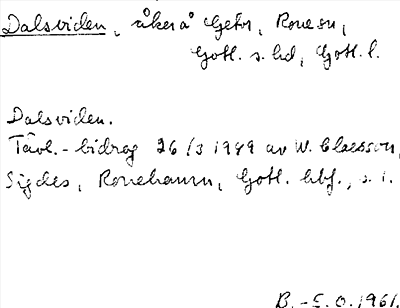 Dalsviden, åker å Gets, Rone sn,
Gotl. s. hd, Gotl. l.
Dalsviden.
Tävl.-bidrag 26/3 1949 av W. Claesson,
Sigdes, Ronehamn, Gotl. hbf., s. 1.
B.-E. O. 1961.